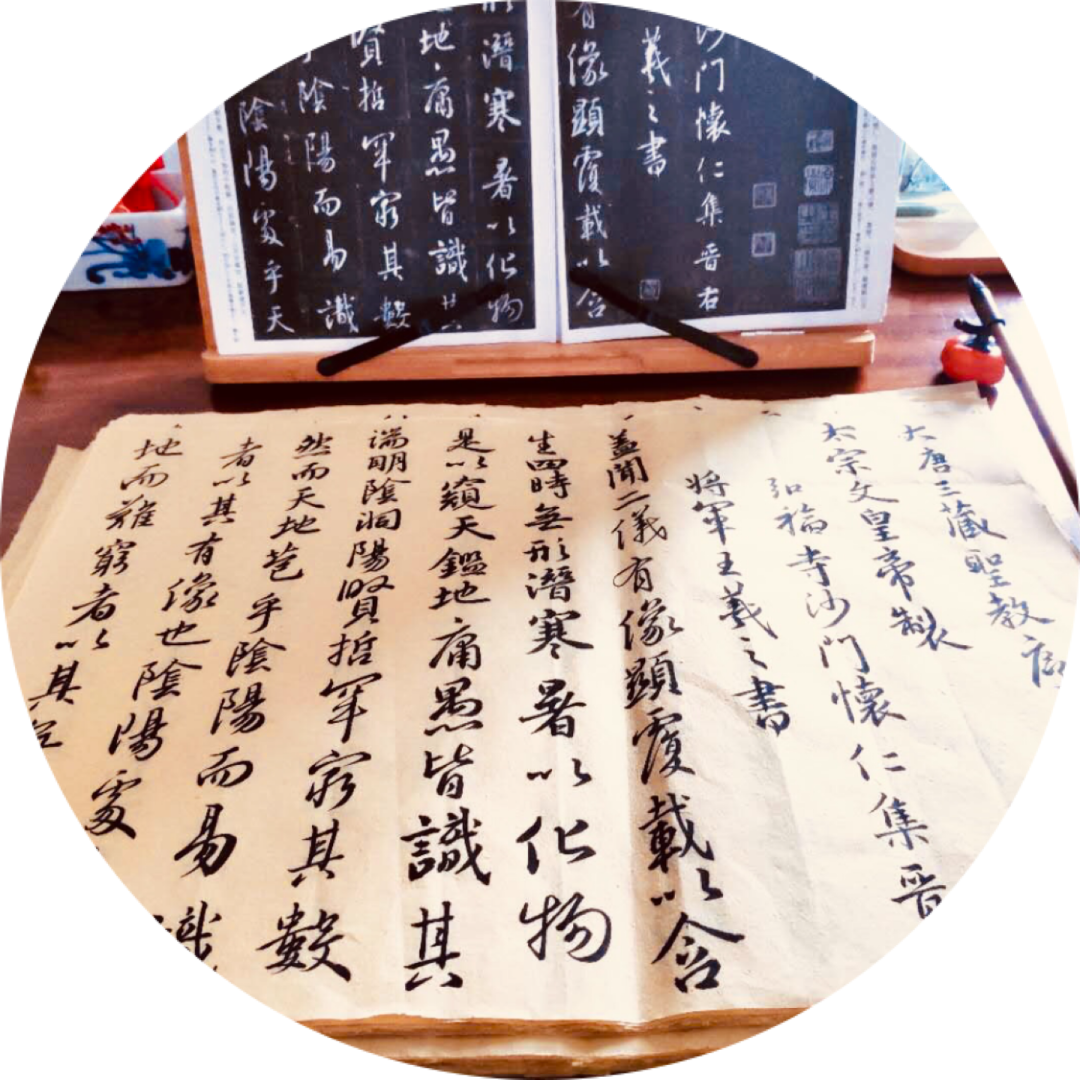 沙門懷仁集晉右
羲之書
有像顯覆載以含
形潛寒暑以化物
地庸愚皆識其
賢哲罕窮其數
乎陰陽而易識
陰陽處乎天
大唐三藏聖教序
太宗文皇帝製
弘福寺沙門懷仁集晉
將軍王羲之書
蓋聞二儀有像顯覆載以含
生四時無形潛寒暑以化物
是以窺天鑑地庸愚皆識其
端明陰洞陽賢哲罕窮其數
然而天地苞乎陰陽而易識
者以其有像也陰陽處
地而難窮者以其